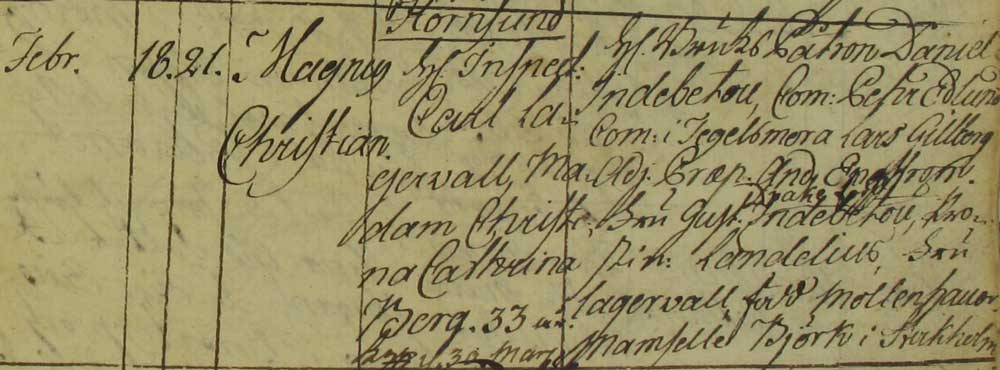 Hörnsund
Febr. 18. 21. Magnus
Christian.
H. Inspect:
Carl La-
gervall, Ma-
dam Christi-
na Cathrina
Berg. 33 år.
H. Bruks Patron Daniel
Indebetou, Com: Pehr Edlund
Com: i Tegelsmora Lars Gillberg
Adj. Præp. And. Engström.
Fru Gust. Indebetou, Kro-
Landelius, Fru
Lagervall född Möllenhauer
Mamselle Björk i Stockholm